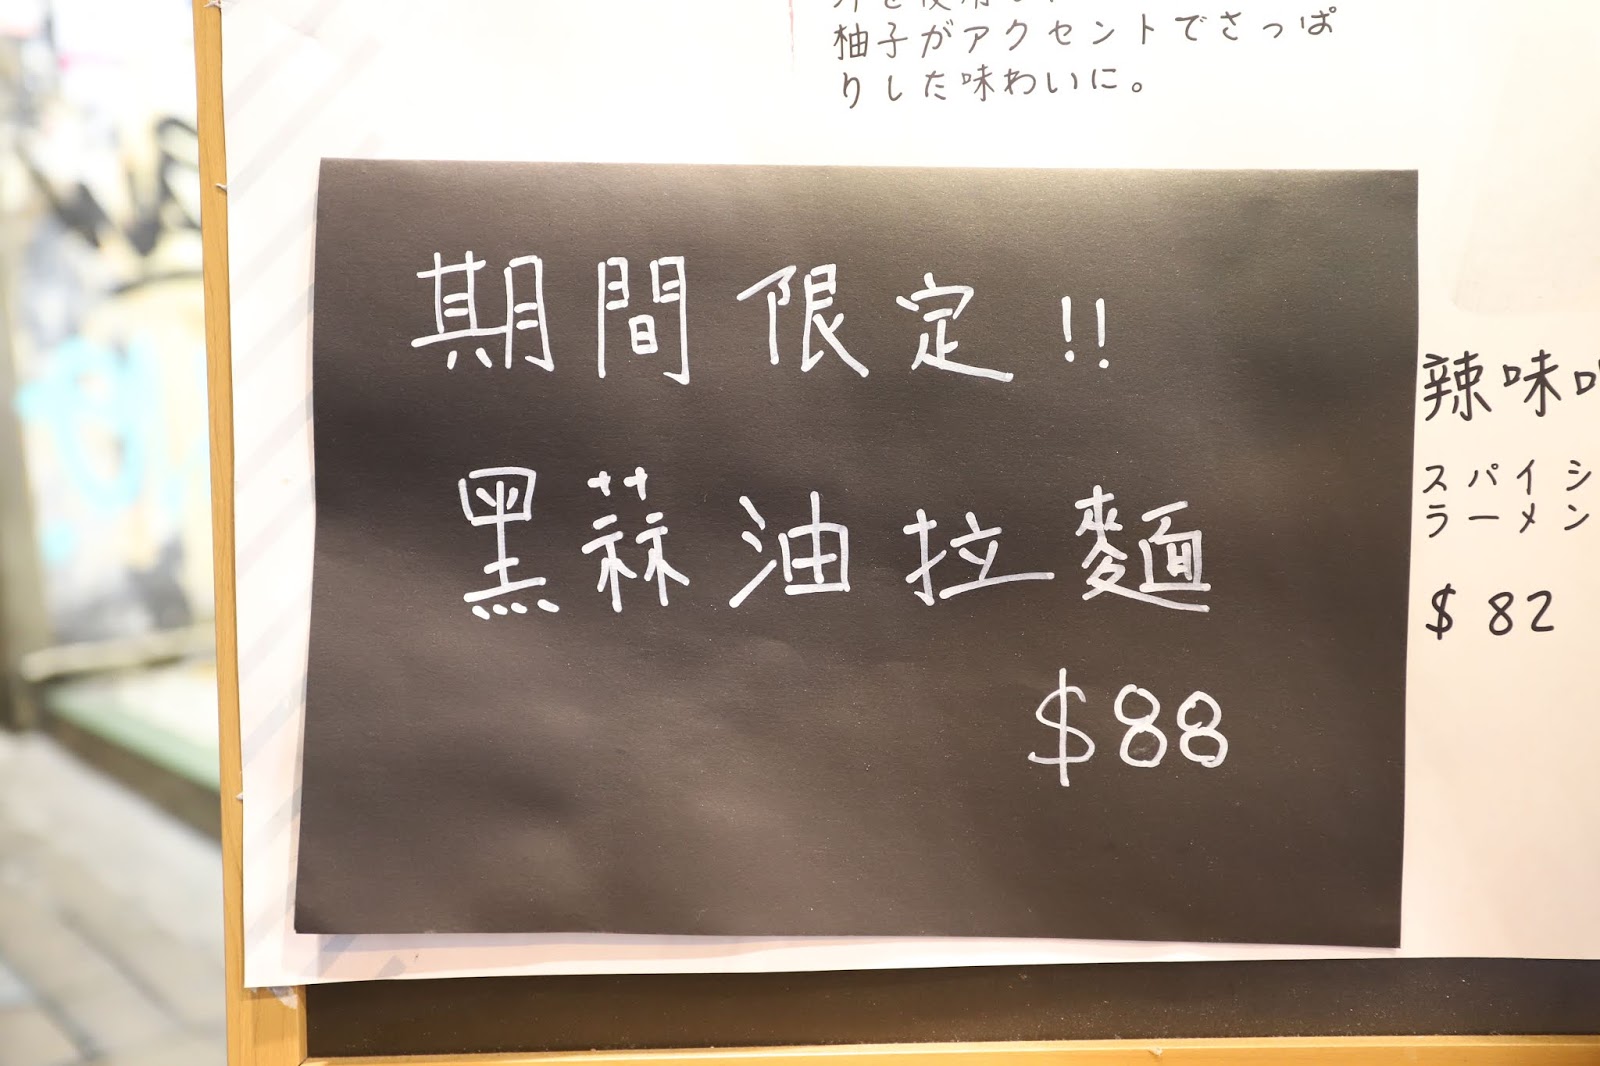 柚子がアクセントでさっぱ
りした味わいに。
期間限定!!
黑蒜油拉麵
$88
辣味
スパイシ
ラーメン
$82